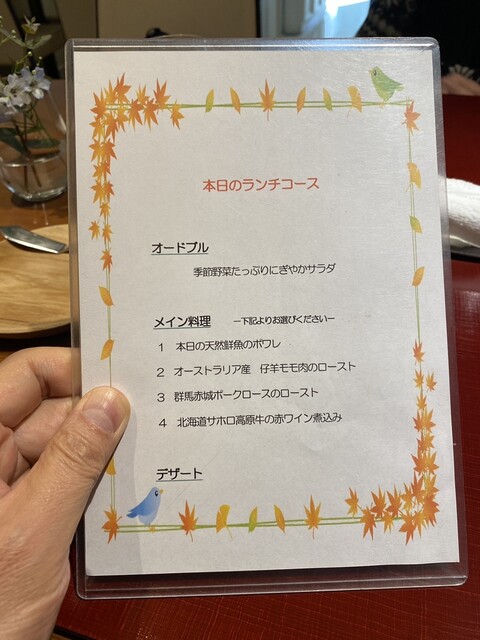 本日のランチコース
オードブル
季節野菜たっぷりにぎやかサラダ
メイン料理 ー下記よりお選びくださいー
1 本日の天然鮮魚のポワレ
2 オーストラリア産 仔羊モモ肉のロースト
3 群馬赤城ポークロースのロースト
4 北海道サホロ高原牛の赤ワイン煮込み
デザート